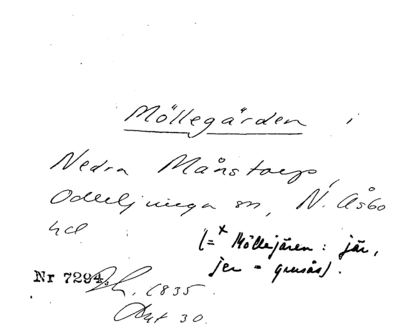 Möllegärden i
Nedra Månstorp,
Odeljunga sn, N. Åsbo
hd
(=* Möllejären: jär,
jer = grusås).
Nr 7294. 1835
Akt 30.